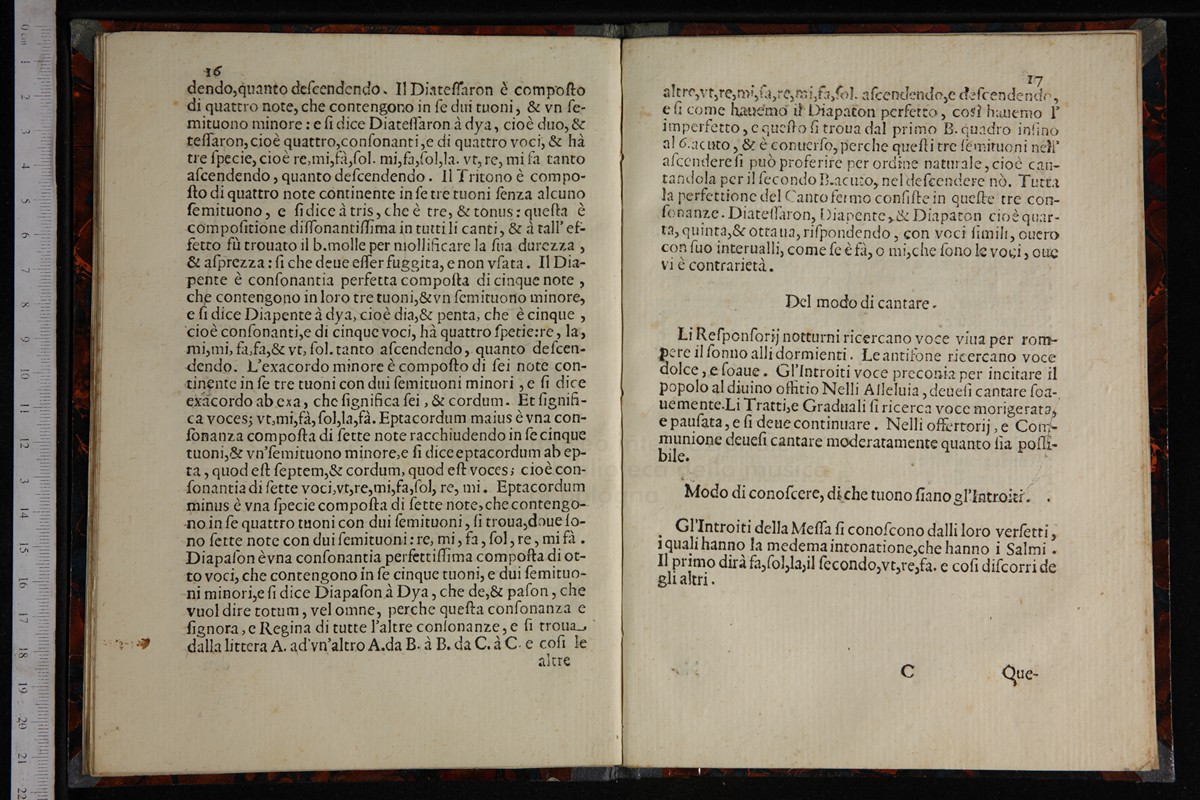 16
dendo,quanto deſcendendo. Il Diateſſaron è compoſto
di quattro note, che contengono in ſe dui tuoni, & vn ſe-
mituono minore : e ſi dice Diateſſaron à dya, cioè duo, &
teſſaron, cioè quattro,conſonanti,e di quattro voci, & hà
tre ſpecie, cioè re,mi,fà,ſol. mi,fa,ſol,la. vt, re, mi fa tanto
aſcendendo, quanto deſcendendo. Il Tritono è compo-
ſto di quattro note continente in ſe tre tuoni ſenza alcuno
ſemituono, e ſi dice à tris, che è tre, & tonus : queſta è
compoſitione diſſonantiſſima in tutti li canti, & à tall' ef-
fetto fù trouato il b.molle per mollificare la ſua durezza ,
& aſprezza : ſi che deue eſſer fuggita, e non vſata. Il Dia-
pente è conſonantia perfetta compoſta di cinque note ,
che contengono in loro tre tuoni,&vn ſemituono minore,
e ſi dice Diapente à dya, cioè dia,& penta, che è cinque ,
cioè conſonanti,e di cinque voci, hà quattro ſpetie:re, la,
mi,mi, fa,fa,& vt, ſol. tanto aſcendendo, quanto deſcen-
dendo. L'exacordo minore è compoſto di ſei note con-
tinente in ſe tre tuoni con dui ſemituoni minori , e ſi dice
exacordo ab exa, che ſignifica ſei , & cordum. Et ſignifi-
ca voces; vt,mi,fà,ſol,la,fà. Eptacordum maius è vna con-
ſonanza compoſta di ſette note racchiudendo in ſe cinque
tuoni,& vn'ſemituono minore,e ſi dice eptacordum ab ep-
ta, quod eſt ſeptem,& cordum, quod eſt voces; cioè con-
ſonantia di ſette voci,vt,re,mi,fa,ſol, re, mi. Eptacordum
minus è vna ſpecie compoſta di ſette note,che contengo-
no in ſe quattro tuoni con dui ſemituoni , ſi troua,doue ſo-
no ſette note con dui ſemituoni : re, mi, fa, ſol, re, mi fà .
Diapaſon è vna conſonantia perfettiſſima compoſta di ot-
to voci, che contengono in ſe cinque tuoni, e dui ſemituo-
ni minori,e ſi dice Diapaſon à Dya, che de,& paſon, che
vuol dire totum, vel omne, perche queſta conſonanza e
ſignora, e Regina di tutte l'altre conſonanze, e ſi troua
dalla littera A. ad vn'altro A.da B. à B. da C. à C. e coſi le
altre
17
altre,vt,re,mi,fa,re,mi,fa,ſol. aſcendendo,e deſcendendo,
e ſi come hauemo il Diapaton perfetto, così hauemo l'
imperfetto, e queſto ſi troua dal primo B. quadro inſino
al 6.acuto, & è conuerſo, perche queſti tre ſemituoni nell'
aſcendere ſi può proferire per ordine naturale, cioè can-
tandola per il ſecondo B.acuto, nel deſcendere nò. Tutta
la perfettione del Canto fermo conſiſte in queſte tre con-
ſonanze. Diateſſaron, Diapente, & Diapaton cioè quar-
ta, quinta,& ottaua, riſpondendo , con voci ſimili, ouero
con ſuo interualli, come ſe è fà, o mi,che ſono le voci, oue
vi è contrarietà.
Del modo di cantare.
Li Reſponſorij notturni ricercano voce viua per rom-
pere il ſonno alli dormienti. Le antifone ricercano voce
dolce, e ſoaue. Gl'Introiti voce preconia per incitare il
popolo al diuino offitio Nelli Alleluia, deueſi cantare ſoa-
uemente.Li Tratti,e Graduali ſi ricerca voce morigerata,
e pauſata, e ſi deue continuare. Nelli offertorij, e Com-
munione deueſi cantare moderatamente quanto ſia poſſi-
bile.
Modo di conoſcere, di che tuono ſiano gl'Introiti.
Gl'Introiti della Meſſa ſi conoſcono dalli loro verſetti,
i quali hanno la medema intonatione,che hanno i Salmi .
Il primo dirà fa,ſol,la,il ſecondo,vt,re,fa. e coſi diſcorri de
gli altri.
C Que-